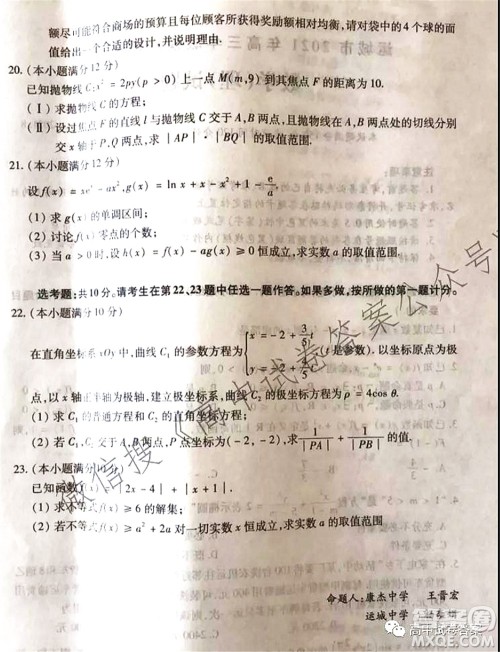 额尽可能符合商场的预算且每位顾客所获得奖励额相对均衡,请对袋中的4个球的面
值给出一个合适的设计,并说明理由.
20. (本小题满分12分)
已知抛物线 C:x² = 2py(p > 0) 上一点 M(m,9) 到其焦点 F 的距离为10.
(Ⅰ) 求抛物线 C 的方程;
(Ⅱ) 设过焦点 F 的直线 l 与抛物线 C 交于 A,B 两点,且抛物线在 A,B 两点处的切线分别
交 x 轴于 P,Q 两点,求 |AP|·|BQ| 的取值范围.
21. (本小题满分12分)
设 f(x) = xeˣ - ax², g(x) = ln x + x - x² + 1 - e/a.
(1) 求 g(x) 的单调区间;
(2) 讨论 f(x) 零点的个数;
(3) 当 a > 0 时,设 h(x) = f(x) - ag(x) ≥ 0 恒成立,求实数 a 的取值范围.
选考题:共10分.请考生在第22、23题中任选一题作答.如果多做,按所做的第一题计分.
22. (本小题满分10分)
在直角坐标系 xOy 中,曲线 C₁ 的参数方程为 { x = -2 + 3/5 t
y = -2 + 4/5 t (t 是参数),以坐标原点为极
点,以 x 轴正半轴为极轴,建立极坐标系,曲线 C₂ 的极坐标方程为 ρ = 4cos θ.
(1) 求 C₁ 的普通方程和 C₂ 的直角坐标方程;
(2) 若 C₁,C₂ 交于 A,B 两点,P 点坐标为 (-2,-2),求 1/|PA| + 1/|PB| 的值.
23. (本小题满分10分)
已知函数 f(x) = |2x - 4| + |x + 1|.
(1) 求不等式 f(x) ≥ 6 的解集;
(2) 若不等式 f(x) ≥ a² + 2a 对一切实数 x 恒成立,求实数 a 的取值范围
命题人:康杰中学 王晋宏
运城中学
微信搜《高中试卷答案公众号》
高中试卷答案